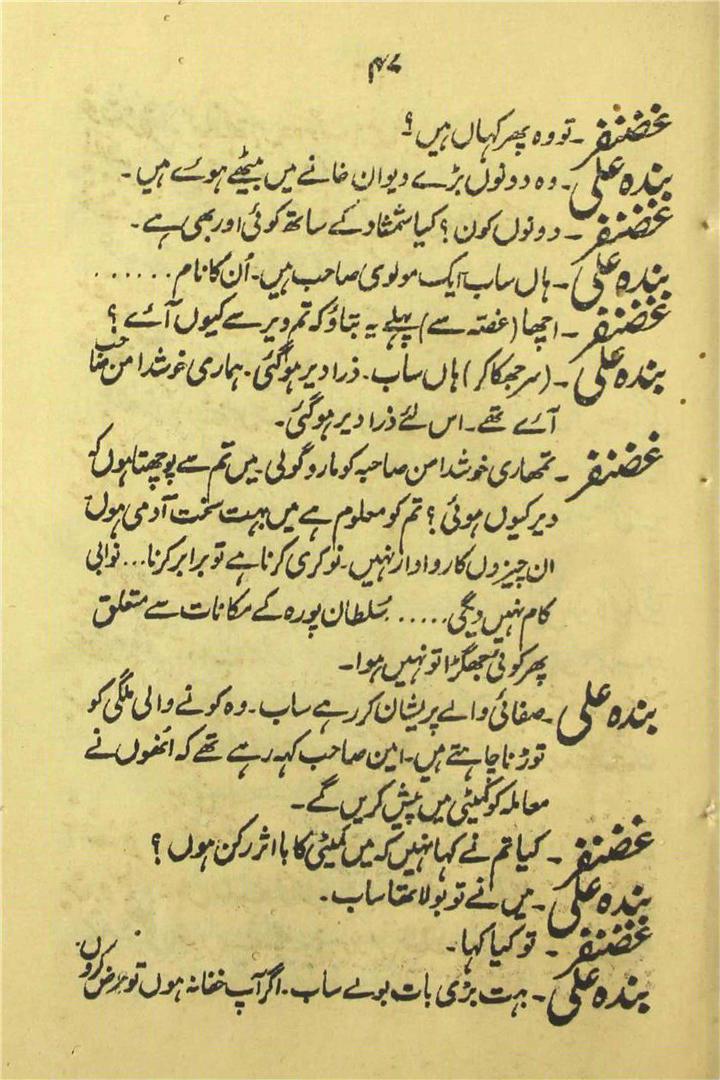 ۴۷
غضنفر ۔ تو وہ پھر کہاں ہیں ؟
بندہ علی ۔ وہ دونوں بڑے دیوان خانے میں بیٹھے ہوئے ہیں ۔
غضنفر ۔ دونوں کون ؟ کیا شمشاد کے ساتھ کوئی اور بھی ہے ۔
بندہ علی ۔ ہاں ساب ایک مولوی صاحب ہیں ۔ اُن کا نام . . . . . .
غضنفر ۔ اچھا (غصّہ سے) پہلے یہ بتاؤ کہ تم دیر سے کیوں آئے ؟
بندہ علی ۔ (سر جھکا کر) ہاں ساب ۔ ذرا دیر ہو گئی ۔ ہماری خوشدامن صاحب
آئے تھے ۔ اس لئے ذرا دیر ہو گئی ۔
غضنفر ۔ تمھاری خوشدامن صاحبہ کو مارو گولی ۔ میں تم سے پوچھتا ہوں کہ
دیر کیوں ہوئی ؟ تم کو معلوم ہے میں بہت سخت آدمی ہوں
ان چیزوں کا روادار نہیں ۔ نوکری کرنا ہے تو برابر کرنا ... نوابی
کام نہیں دیگی ..... سُلطان پورہ کے مکانات سے متعلق
پھر کوئی جھگڑا تو نہیں ہوا ۔
بندہ علی ۔ صفائی والے پریشان کر رہے ساب ۔ وہ کونے والی ملگی کو
توڑنا چاہتے ہیں ۔ امین صاحب کہہ رہے تھے کہ انھوں نے
معاملہ کو کمیٹی میں پیش کریں گے ۔
غضنفر ۔ کیا تم نے کہا نہیں کہ میں کمیٹی کا با اثر رکن ہوں ؟
بندہ علی ۔ میں نے تو بولا تھا ساب ۔
غضنفر ۔ تو کیا کہا ۔
بندہ علی ۔ بہت بڑی بات بولے ساب ۔ اگر آپ خفا نہ ہوں تو عرض کروں ۔